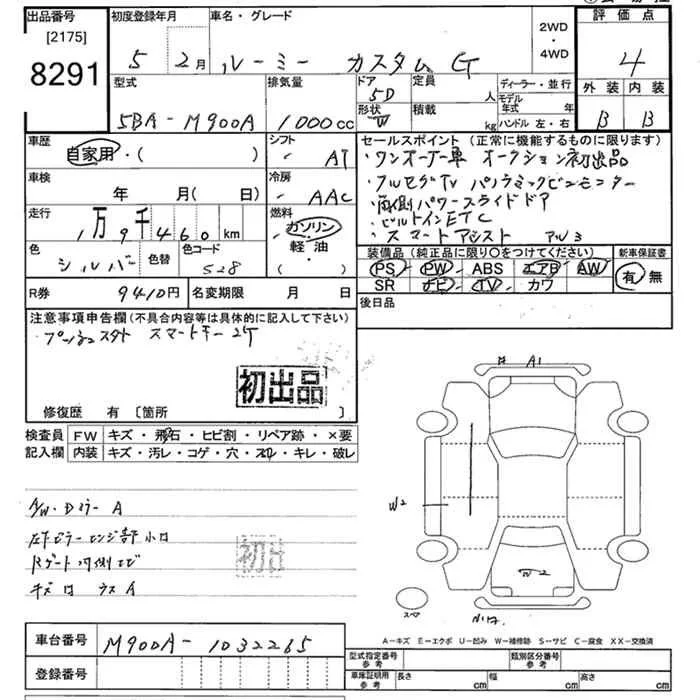 出品番号
[2175]
8291
初度登録年月
5 2月
車名・グレード
ルーミー カスタム G
2WD
・
4WD
評価点
4
型式
5BA-M900A
排気量
1000cc
ドア
5D
形状
W
定員
人
積載
kg
ディーラー・並行
モデル年式 年
ハンドル 左・右
外装 内装
B B
車歴
自家用・( )
シフト
AT
セールスポイント(正常に機能するものに限ります)
・ワンオーナー車 オークション初出品
・フルセグTV パノラミックビューモニター
・両側パワースライドドア
・ビルトインETC
・スマートアシスト アルミ
車検
年 月( 日)
冷房
AAC
走行
1万9千460km
燃料
ガソリン
・
軽・油
( )
色
シルバー
色替
色コード
S28
装備品(純正品に限り○をつけてください)
PS PW ABS エアB AW
SR ナビ TV カワ
新車保証書
有 無
R券
9410円
名変期限 月 日
後日品
注意事項申告欄(不具合内容等は具体的に記入して下さい)
プッシュスタート スマートキー2ケ
初出品
修復歴 有 〔箇所 〕
検査員
記入欄
FW キズ・飛石・ヒビ割・リペア跡・×要
内装 キズ・汚レ・コゲ・穴・スレ・キレ・破レ
A/W・Dミラー A
初出
A1
W2
W2
スペア
A-キズ E-エクボ U-凹み W-補修跡 S-サビ C-腐食 XX-交換済
車台番号
M900A-1032265
登録番号
型式指定番号
参考
類別区分番号
参考
車庫証明用
参考
長さ cm
幅 cm
高さ cm